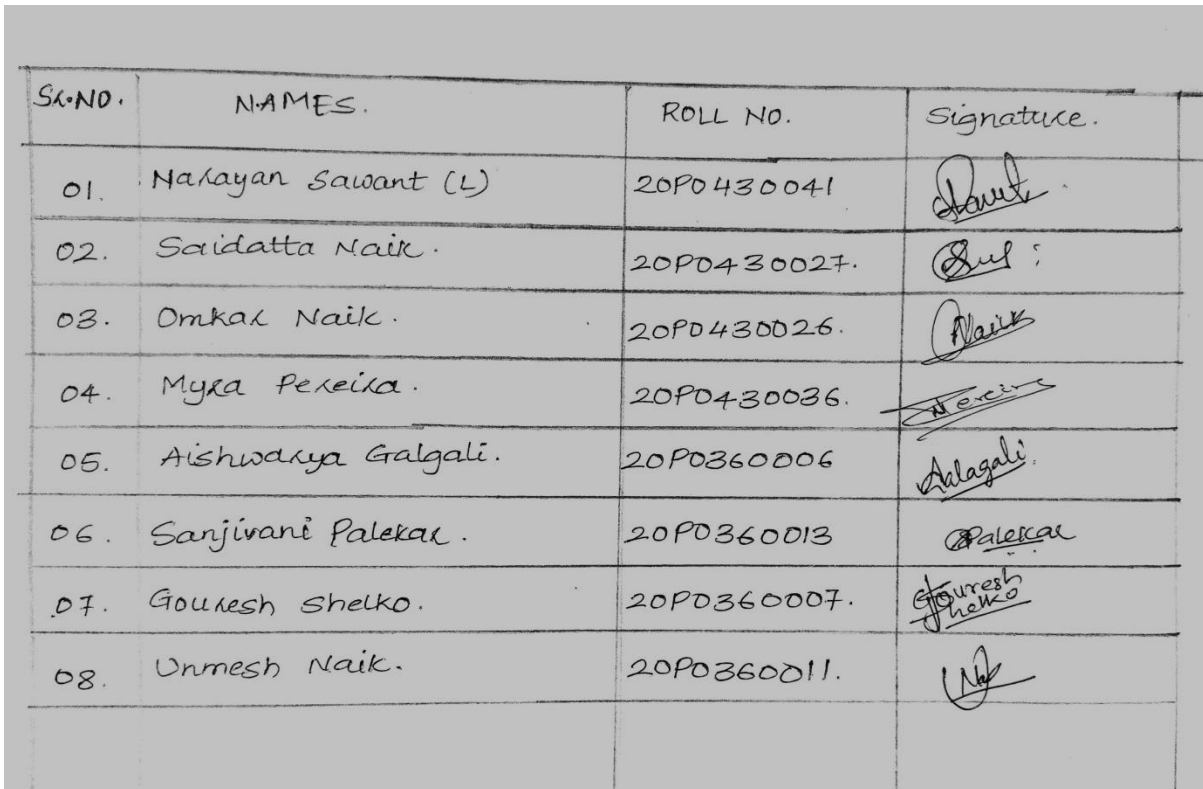 Sr.NO. NAMES. ROLL NO. Signature.
01. Narayan Sawant (L) 20P0430041
02. Saidatta Naik. 20P0430027.
03. Omkar Naik. 20P0430026. Naik
04. Myra Pereira. 20P0430036.
05. Aishwarya Galgali. 20P0360006
06. Sanjivani Palekar. 20P0360013 SPalekar
07. Gouresh Shelko. 20P0360007. Gouresh Shelko
08. Unmesh Naik. 20P0360011.